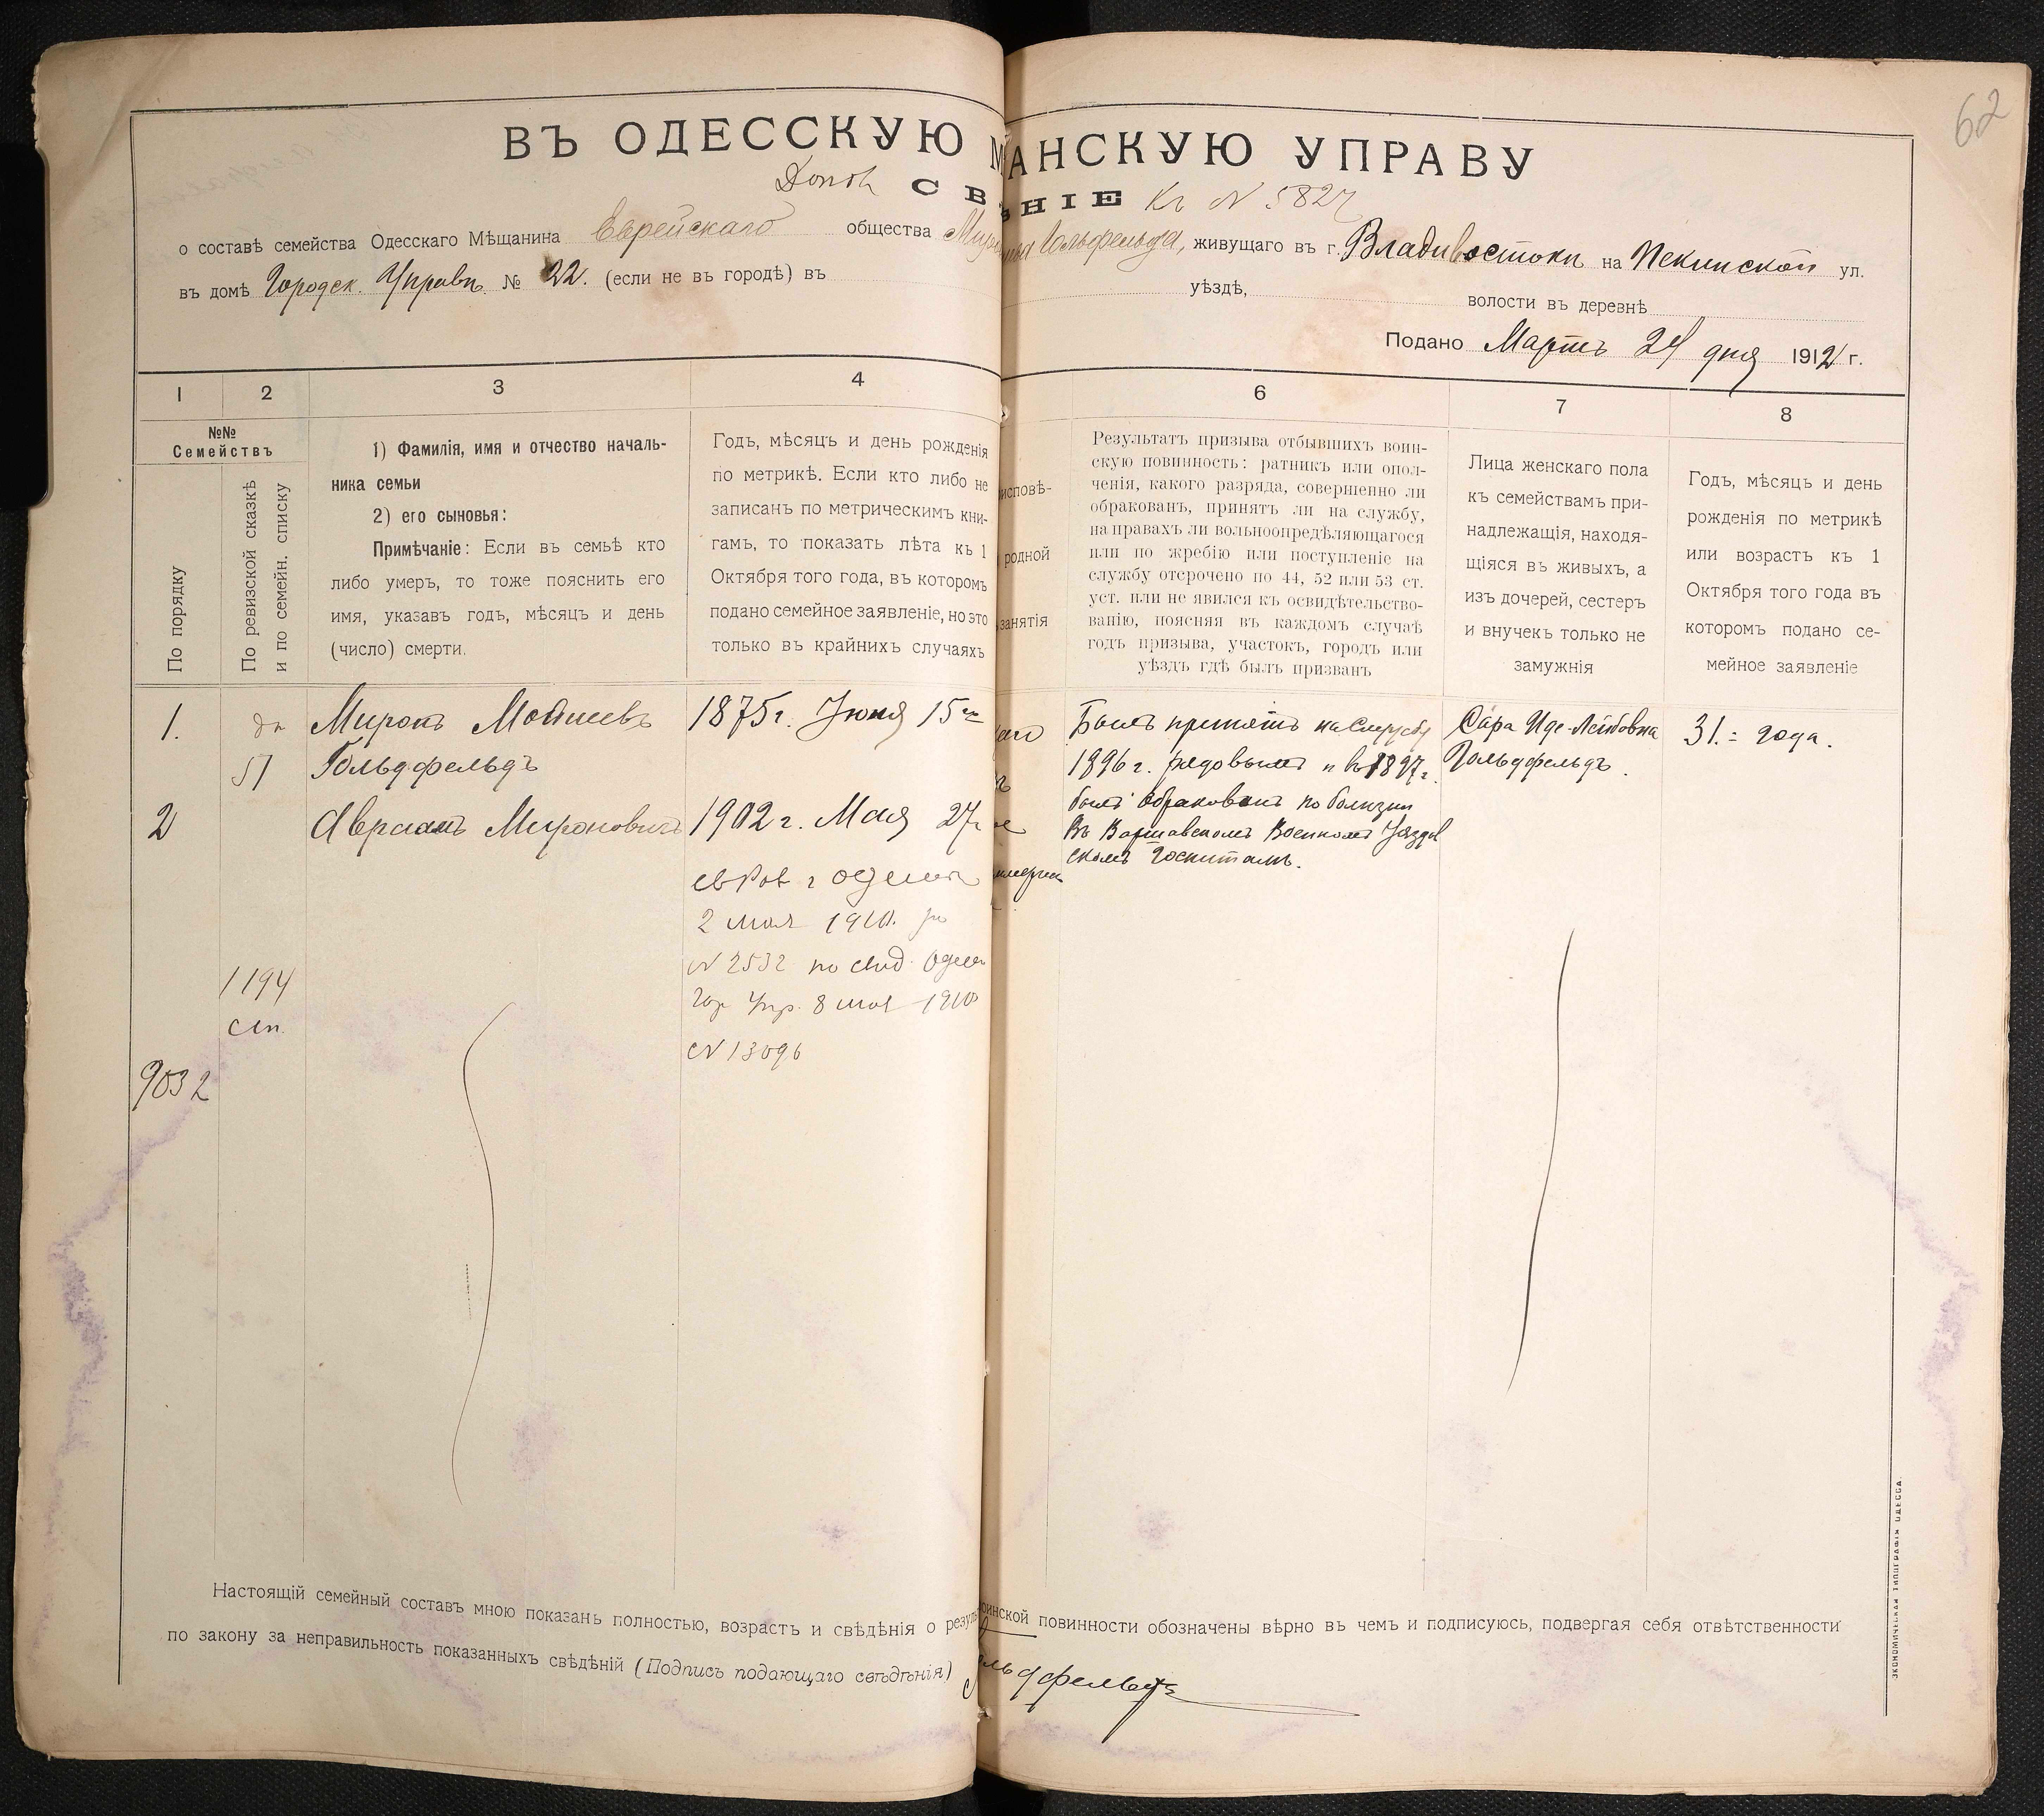 62
ВЪ ОДЕССКУЮ М АНСКУЮ УПРАВУ
Допол СВ НІЕ Къ № 5827
о составѣ семейства Одесскаго Мѣщанина Еврейскаго общества Гольдфельда, живущаго въ г. Владивостокѣ на Пекинской ул.
въ домѣ Городск. Управы № 22. (если не въ городѣ) въ уѣздѣ, волости въ деревнѣ
Подано Мартъ 24 дня 1912 г.
1 2 3 4 6 7 8
№№ Семействъ
По порядку
По ревизской сказкѣ
и по семейн. списку
1) Фамилія, имя и отчество началь-
ника семьи
2) его сыновья:
Примѣчаніе: Если въ семьѣ кто
либо умеръ, то тоже пояснить его
имя, указавъ годъ, мѣсяцъ и день
(число) смерти.
Годъ, мѣсяцъ и день рожденія
по метрикѣ. Если кто либо не
записанъ по метрическимъ кни-
гамъ, то показать лѣта къ 1
Октября того года, въ которомъ
подано семейное заявленіе, но это
только въ крайнихъ случаяхъ
исповѣ-
родной
занятія
Результатъ призыва отбывшихъ воин-
скую повинность: ратникъ или опол-
ченія, какого разряда, совершенно ли
обракованъ, принятъ ли на службу,
на правахъ ли вольноопредѣляющагося
или по жребію или поступленіе на
службу отсрочено по 44, 52 или 53 ст.
уст. или не явился къ освидѣтельство-
ванію, поясняя въ каждомъ случаѣ
годъ призыва, участокъ, городъ или
уѣздъ гдѣ былъ призванъ
Лица женскаго пола
къ семействамъ при-
надлежащія, находя-
щіяся в живыхъ, а
изъ дочерей, сестеръ
и внучекъ только не
замужнія
Годъ, мѣсяцъ и день
рожденія по метрикѣ
или возрастъ къ 1
Октября того года въ
которомъ подано се-
мейное заявленіе
1. Миронъ Мойшевъ
Гольдфельдъ
1875 г. Іюня 15го
Былъ принятъ на Службу
1896 г. рядовымъ и въ 1897 г.
былъ обракованъ по болѣзни
Въ Варшавскомъ Военномъ Уяздов
скомъ Госпиталѣ.
Сара Иде-Лейбовна
Гольдфельдъ.
31. = года.
2 Авраамъ Мироновичъ
1902 г. Мая 27
2 мая 1910.
№ 2532 по свид. Одесс
Гор Упр. 8 мая 1910
№ 13096
1194
сп.
9032
Настоящій семейный составъ мною показанъ полностью, возрастъ и свѣдѣнія о резуль оинской повинности обозначены вѣрно въ чемъ и подписуюсь, подвергая себя отвѣтственности
по закону за неправильность показанныхъ свѣдѣній (Подпись подающаго свѣдѣнія) льдфельдъ
ЭКОНОМИЧЕСКАЯ ТИПОГРАФІЯ ОДЕССА.